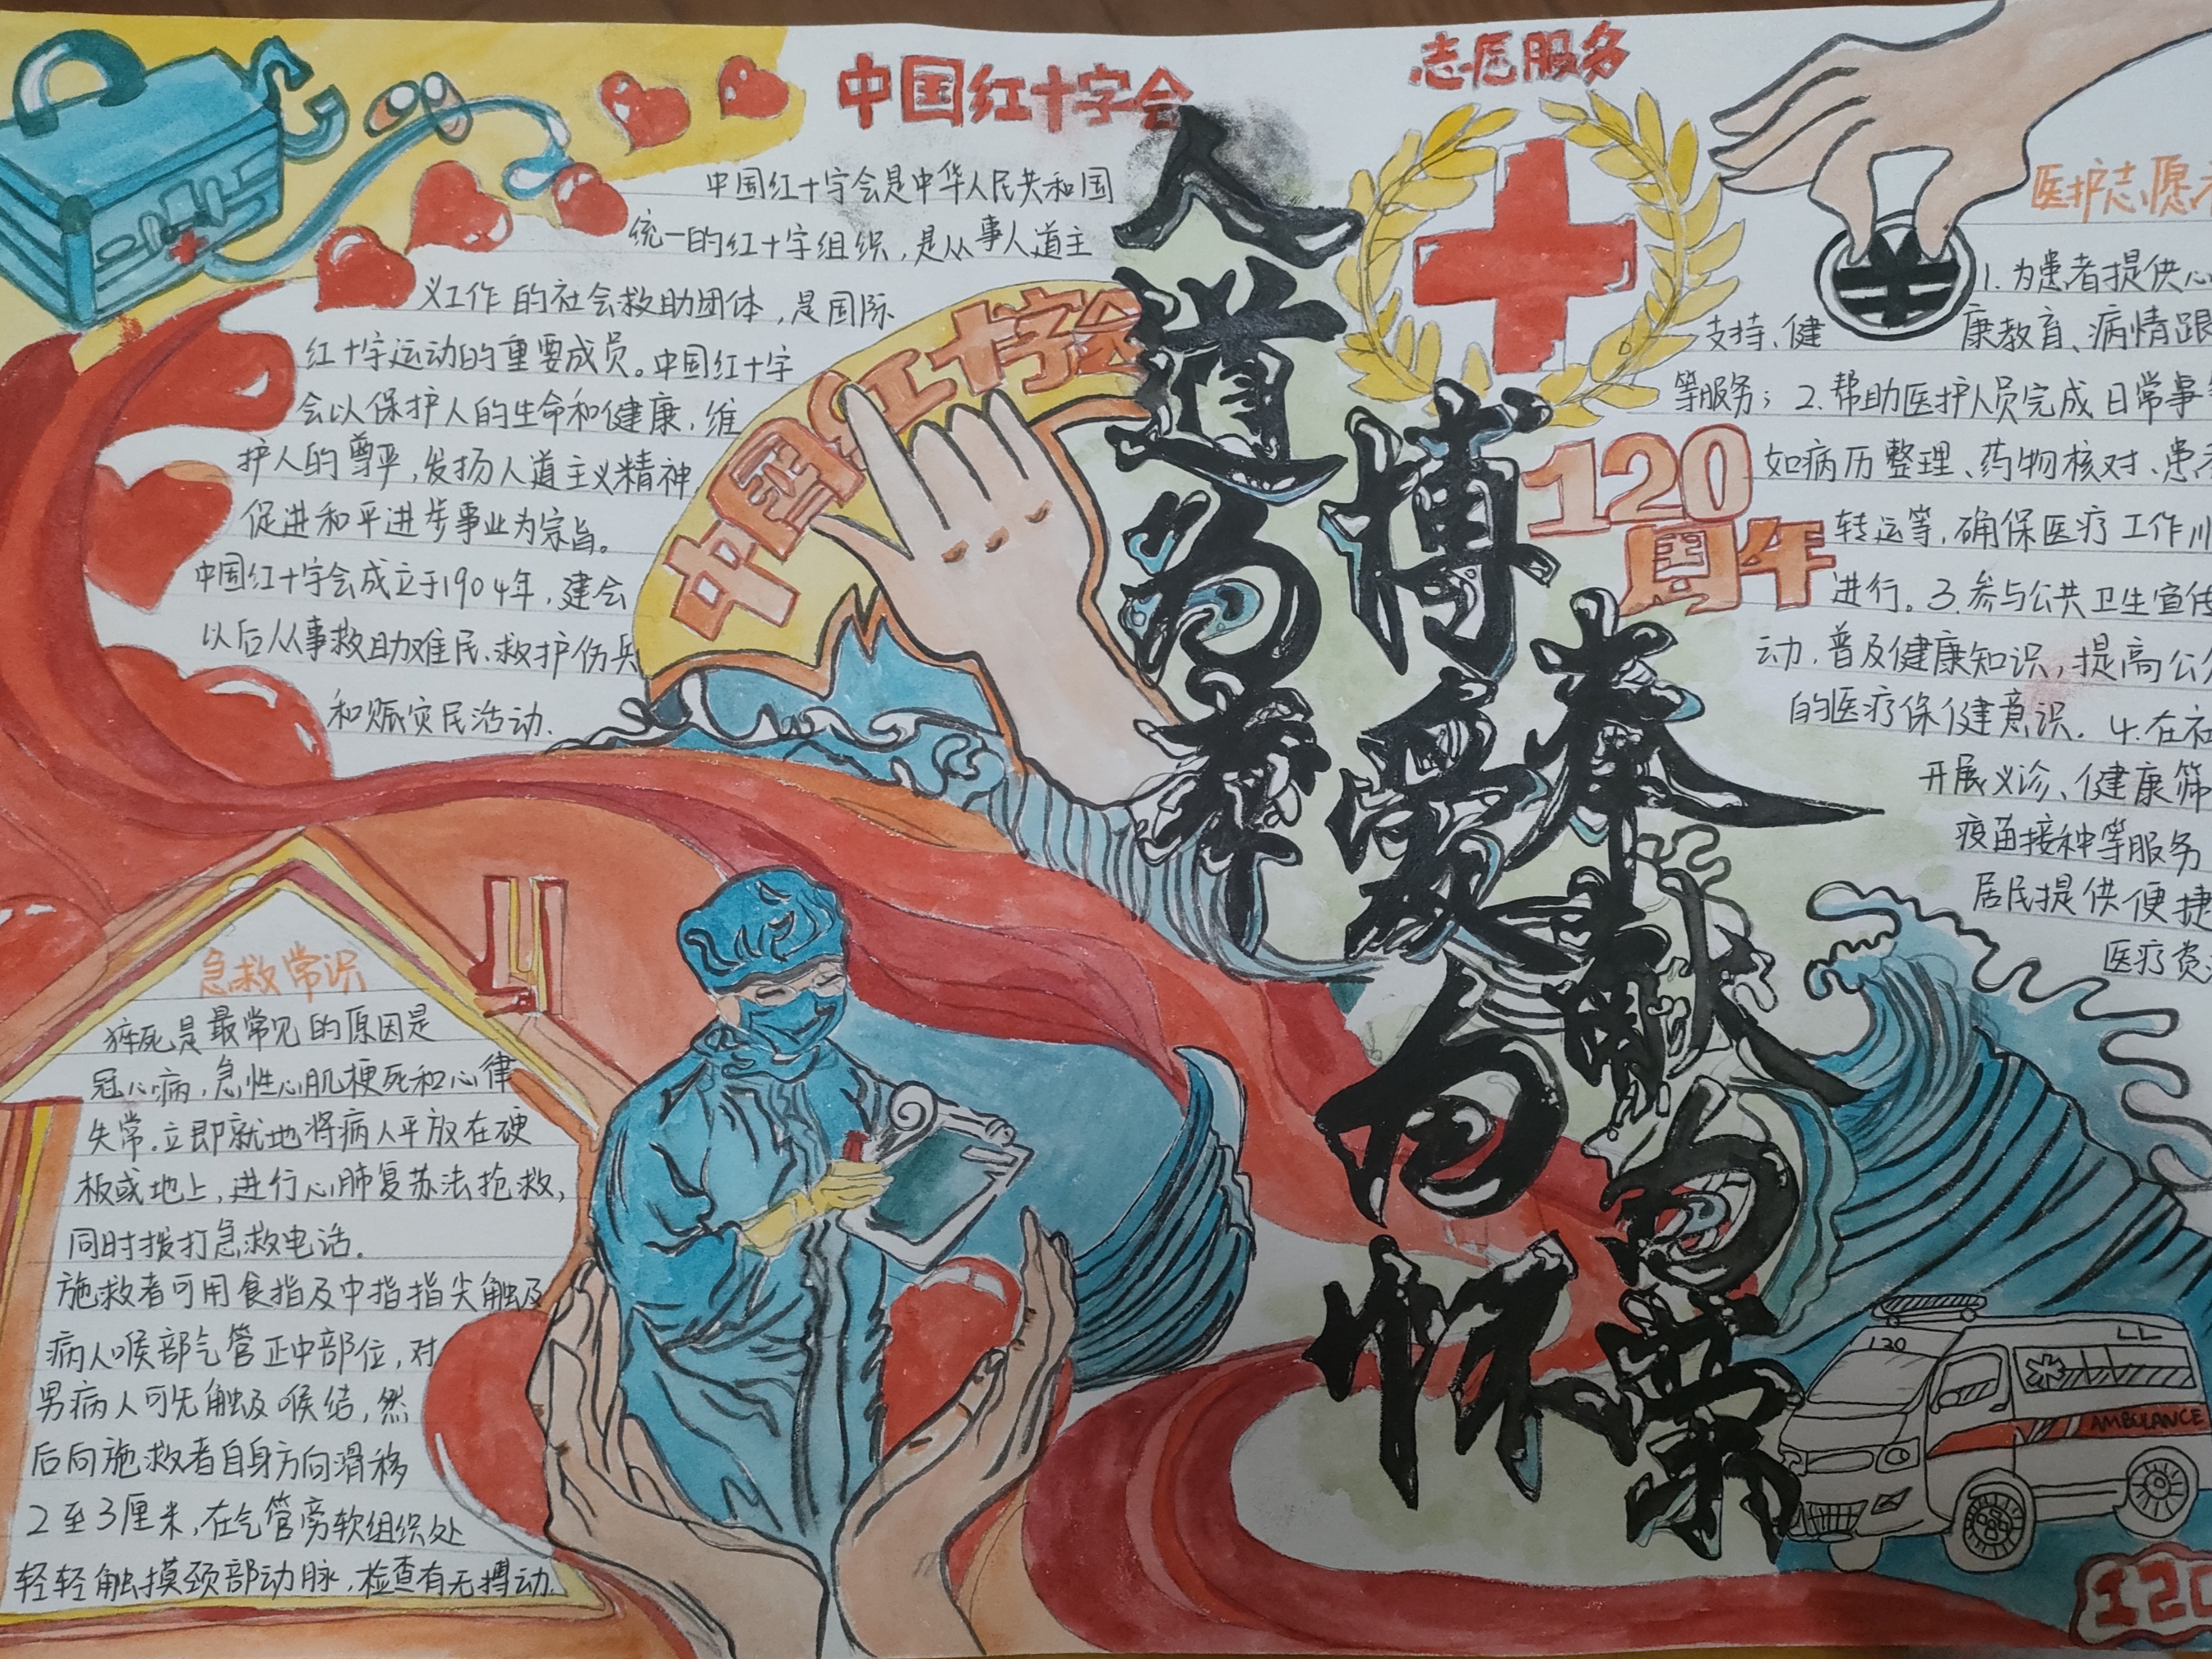 中国红十字会
中国红十字会是中华人民共和国
统一的红十字组织，是从事人道主
义工作的社会救助团体，是国际
红十字运动的重要成员。中国红十字
会以保护人的生命和健康，维
护人的尊严，发扬人道主义精神
促进和平进步事业为宗旨。
中国红十字会成立于1904年，建会
以后从事救助难民、救护伤兵
和赈灾民活动.
中国红十字会
急救常识
猝死是最常见的原因是
冠心病，急性心肌梗死和心律
失常.立即就地将病人平放在硬
板或地上，进行心肺复苏法抢救，
同时拨打急救电话.
施救者可用食指及中指指尖触及
病人喉部气管正中部位，对
男病人可先触及喉结，然
后向施救者自身方向滑移
2至3厘米，在气管旁软组织处
轻轻触摸颈部动脉，检查有无搏动.
人道为荐
博爱为怀
奉献为荣
志愿服务
120
周年
医护志愿
1.为患者提供心
支持、健康教育、病情跟
等服务；2.帮助医护人员完成日常事
如病历整理、药物核对、患
转运等，确保医疗工作
进行。3.参与公共卫生宣传
动，普及健康知识，提高公
的医疗保健意识. 4.在社
开展义诊、健康筛
疫苗接种等服务
居民提供便捷
医疗资
120
AMBULANCE
120